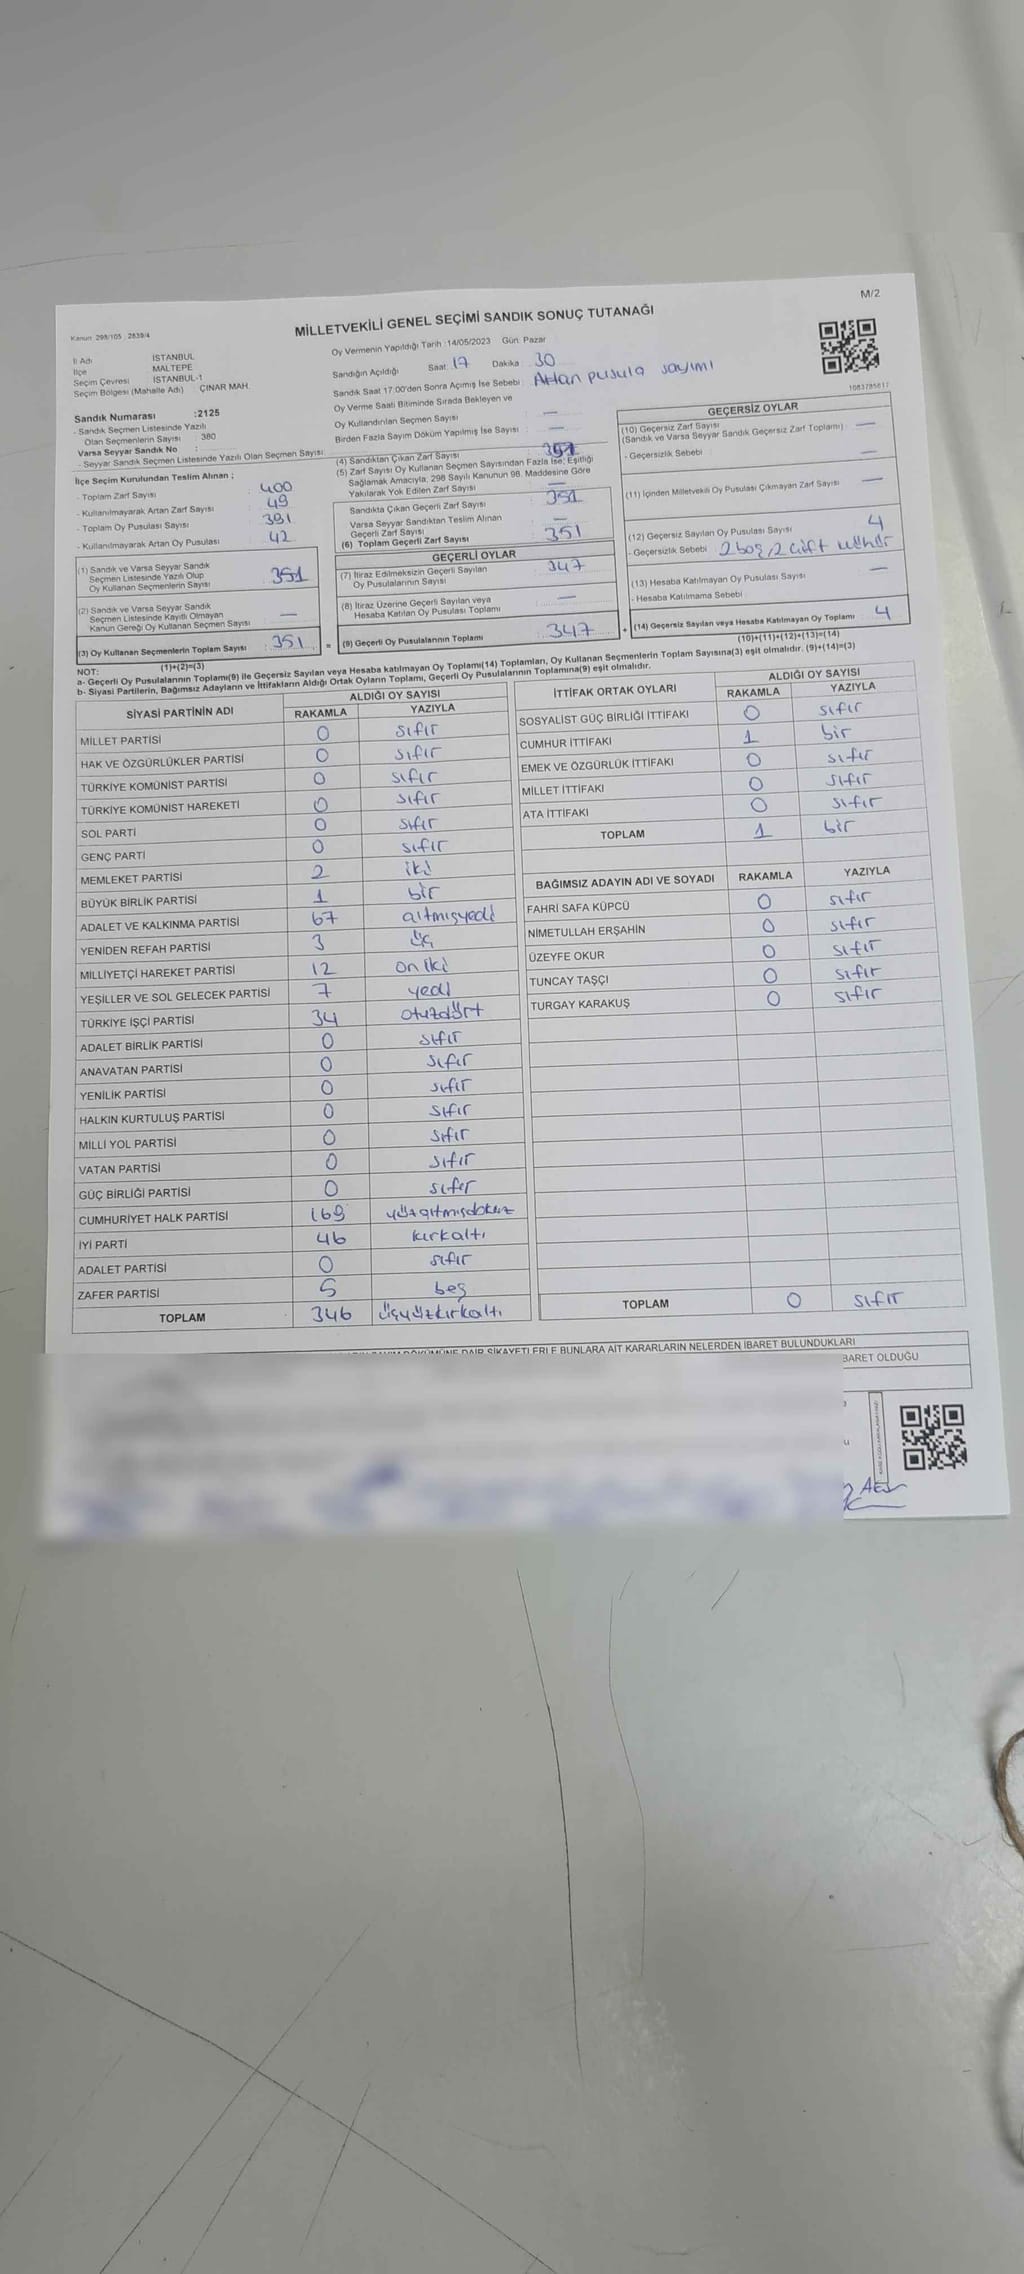 M/2
Kanun 298/105 2839/4
MİLLETVEKİLİ GENEL SEÇİMİ SANDIK SONUÇ TUTANAĞI
İl Adı İSTANBUL
İlçe MALTEPE
Seçim Çevresi İSTANBUL-1
Seçim Bölgesi (Mahalle Adı) ÇINAR MAH.
Sandık Numarası :2125
- Sandık Seçmen Listesinde Yazılı
Olan Seçmenlerin Sayısı : 380
Varsa Seyyar Sandık No :
- Seyyar Sandık Seçmen Listesinde Yazılı Olan Seçmen Sayısı:
Oy Vermenin Yapıldığı Tarih :14/05/2023 Gün: Pazar
Sandığın Açıldığı Saat: 17 Dakika 30
Sandık Saat 17:00'den Sonra Açılmış İse Sebebi: Artan pusula sayımı
Oy Verme Saati Bitiminde Sırada Bekleyen ve
Oy Kullandırılan Seçmen Sayısı : —
Birden Fazla Sayım Döküm Yapılmış İse Sayısı : —
İlçe Seçim Kurulundan Teslim Alınan ;
- Toplam Zarf Sayısı : 400
- Kullanılmayarak Artan Zarf Sayısı : 49
- Toplam Oy Pusulası Sayısı : 391
- Kullanılmayarak Artan Oy Pusulası : 42
(1) Sandık ve Varsa Seyyar Sandık
Seçmen Listesinde Yazılı Olup
Oy Kullanan Seçmenlerin Sayısı : 351
(2) Sandık ve Varsa Seyyar Sandık
Seçmen Listesinde Kayıtlı Olmayan
Kanun Gereği Oy Kullanan Seçmen Sayısı : —
(3) Oy Kullanan Seçmenlerin Toplam Sayısı : 351
(1)+(2)=(3)
(4) Sandıktan Çıkan Zarf Sayısı : 351
(5) Zarf Sayısı Oy Kullanan Seçmen Sayısından Fazla İse; Eşitliği
Sağlamak Amacıyla; 298 Sayılı Kanunun 98. Maddesine Göre
Yakılarak Yok Edilen Zarf Sayısı : —
Sandıkta Çıkan Geçerli Zarf Sayısı : 351
Varsa Seyyar Sandıktan Teslim Alınan
Geçerli Zarf Sayısı : —
(6) Toplam Geçerli Zarf Sayısı : 351
GEÇERLİ OYLAR
(7) İtiraz Edilmeksizin Geçerli Sayılan
Oy Pusulalarının Sayısı : 347
(8) İtiraz Üzerine Geçerli Sayılan veya
Hesaba Katılan Oy Pusulası Toplamı : —
= (9) Geçerli Oy Pusulalarının Toplamı : 347 +
GEÇERSİZ OYLAR
(10) Geçersiz Zarf Sayısı : —
(Sandık ve Varsa Seyyar Sandık Geçersiz Zarf Toplamı)
- Geçersizlik Sebebi : —
(11) İçinden Milletvekili Oy Pusulası Çıkmayan Zarf Sayısı : —
(12) Geçersiz Sayılan Oy Pusulası Sayısı : 4
- Geçersizlik Sebebi : 2 boş, 2 çift mühür
(13) Hesaba Katılmayan Oy Pusulası Sayısı : —
- Hesaba Katılmama Sebebi :
(14) Geçersiz Sayılan veya Hesaba Katılmayan Oy Toplamı : 4
(10)+(11)+(12)+(13)=(14)
NOT:
a- Geçerli Oy Pusulalarının Toplamı(9) ile Geçersiz Sayılan veya Hesaba katılmayan Oy Toplamı(14) Toplamları, Oy Kullanan Seçmenlerin Toplam Sayısına(3) eşit olmalıdır. (9)+(14)=(3)
b- Siyasi Partilerin, Bağımsız Adayların ve İttifakların Aldığı Ortak Oyların Toplamı, Geçerli Oy Pusulalarının Toplamına(9) eşit olmalıdır.
SİYASİ PARTİNİN ADI ALDIĞI OY SAYISI
RAKAMLA YAZIYLA
MİLLET PARTİSİ 0 sıfır
HAK VE ÖZGÜRLÜKLER PARTİSİ 0 sıfır
TÜRKİYE KOMÜNİST PARTİSİ 0 sıfır
TÜRKİYE KOMÜNİST HAREKETİ 0 sıfır
SOL PARTİ 0 sıfır
GENÇ PARTİ 0 sıfır
MEMLEKET PARTİSİ 2 iki
BÜYÜK BİRLİK PARTİSİ 1 bir
ADALET VE KALKINMA PARTİSİ 67 altmışyedi
YENİDEN REFAH PARTİSİ 3 üç
MİLLİYETÇİ HAREKET PARTİSİ 12 on iki
YEŞİLLER VE SOL GELECEK PARTİSİ 7 yedi
TÜRKİYE İŞÇİ PARTİSİ 34 otuzdört
ADALET BİRLİK PARTİSİ 0 sıfır
ANAVATAN PARTİSİ 0 sıfır
YENİLİK PARTİSİ 0 sıfır
HALKIN KURTULUŞ PARTİSİ 0 sıfır
MİLLİ YOL PARTİSİ 0 sıfır
VATAN PARTİSİ 0 sıfır
GÜÇ BİRLİĞİ PARTİSİ 0 sıfır
CUMHURİYET HALK PARTİSİ 169 yüzaltmışdokuz
İYİ PARTİ 46 kırkaltı
ADALET PARTİSİ 0 sıfır
ZAFER PARTİSİ 5 beş
TOPLAM 346 üçyüzkırkaltı
İTTİFAK ORTAK OYLARI ALDIĞI OY SAYISI
RAKAMLA YAZIYLA
SOSYALİST GÜÇ BİRLİĞİ İTTİFAKI 0 sıfır
CUMHUR İTTİFAKI 1 bir
EMEK VE ÖZGÜRLÜK İTTİFAKI 0 sıfır
MİLLET İTTİFAKI 0 sıfır
ATA İTTİFAKI 0 sıfır
TOPLAM 1 bir
BAĞIMSIZ ADAYIN ADI VE SOYADI RAKAMLA YAZIYLA
FAHRİ SAFA KÜPCÜ 0 sıfır
NİMETULLAH ERŞAHİN 0 sıfır
ÜZEYFE OKUR 0 sıfır
TUNCAY TAŞÇI 0 sıfır
TURGAY KARAKUŞ 0 sıfır
TOPLAM 0 sıfır
DÖKÜMÜNE DAİR ŞİKAYETLERLE BUNLARA AİT KARARLARIN NELERDEN İBARET BULUNDUKLARI
BARET OLDUĞU